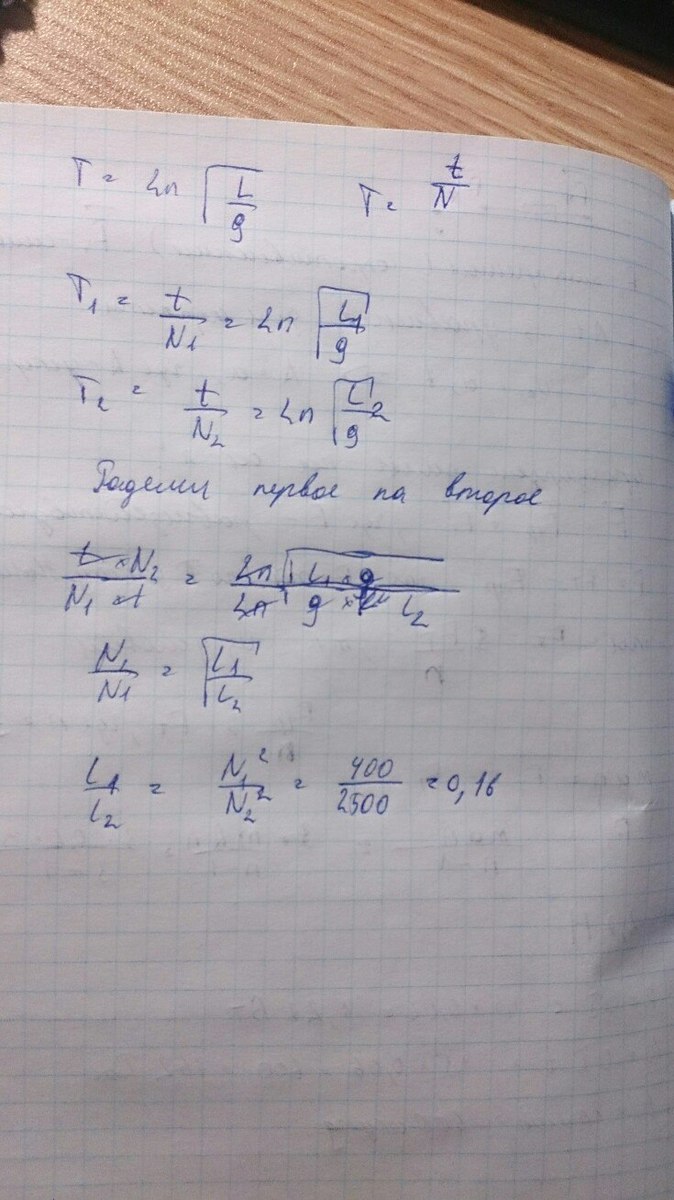 T = 2π √(L/g) T = t/N
T₁ = t/N₁ = 2π √(L₁/g)
T₂ = t/N₂ = 2π √(L/g)₂
Раделим первое на второе
(t × N₂)/(N₁ × t) = 2π √(L₁ × g)/(2π g × L₂)
N₂/N₁ = √(L₁/L₂)
L₁/L₂ = N₁²/N₂² = 400/2500 = 0,16